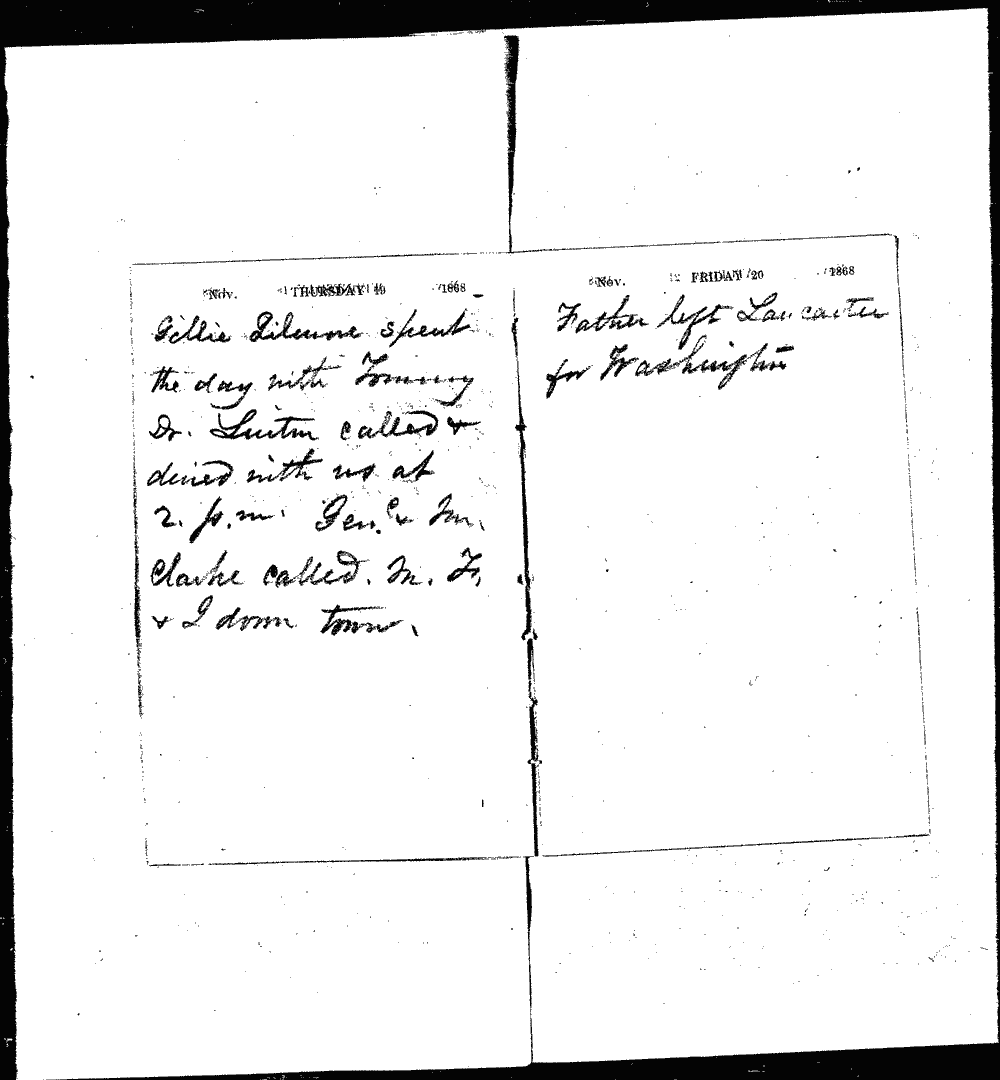 Nov. THURSDAY 19 1868
Gillie Gilmore spent
the day with Tommy
Dr. called &
dined with us at
2. p.m. Gen. & Mr.
Clarke called. M. F.
& I down town.
Nov. FRIDAY 20 1868
Father left Lancaster
for Washington